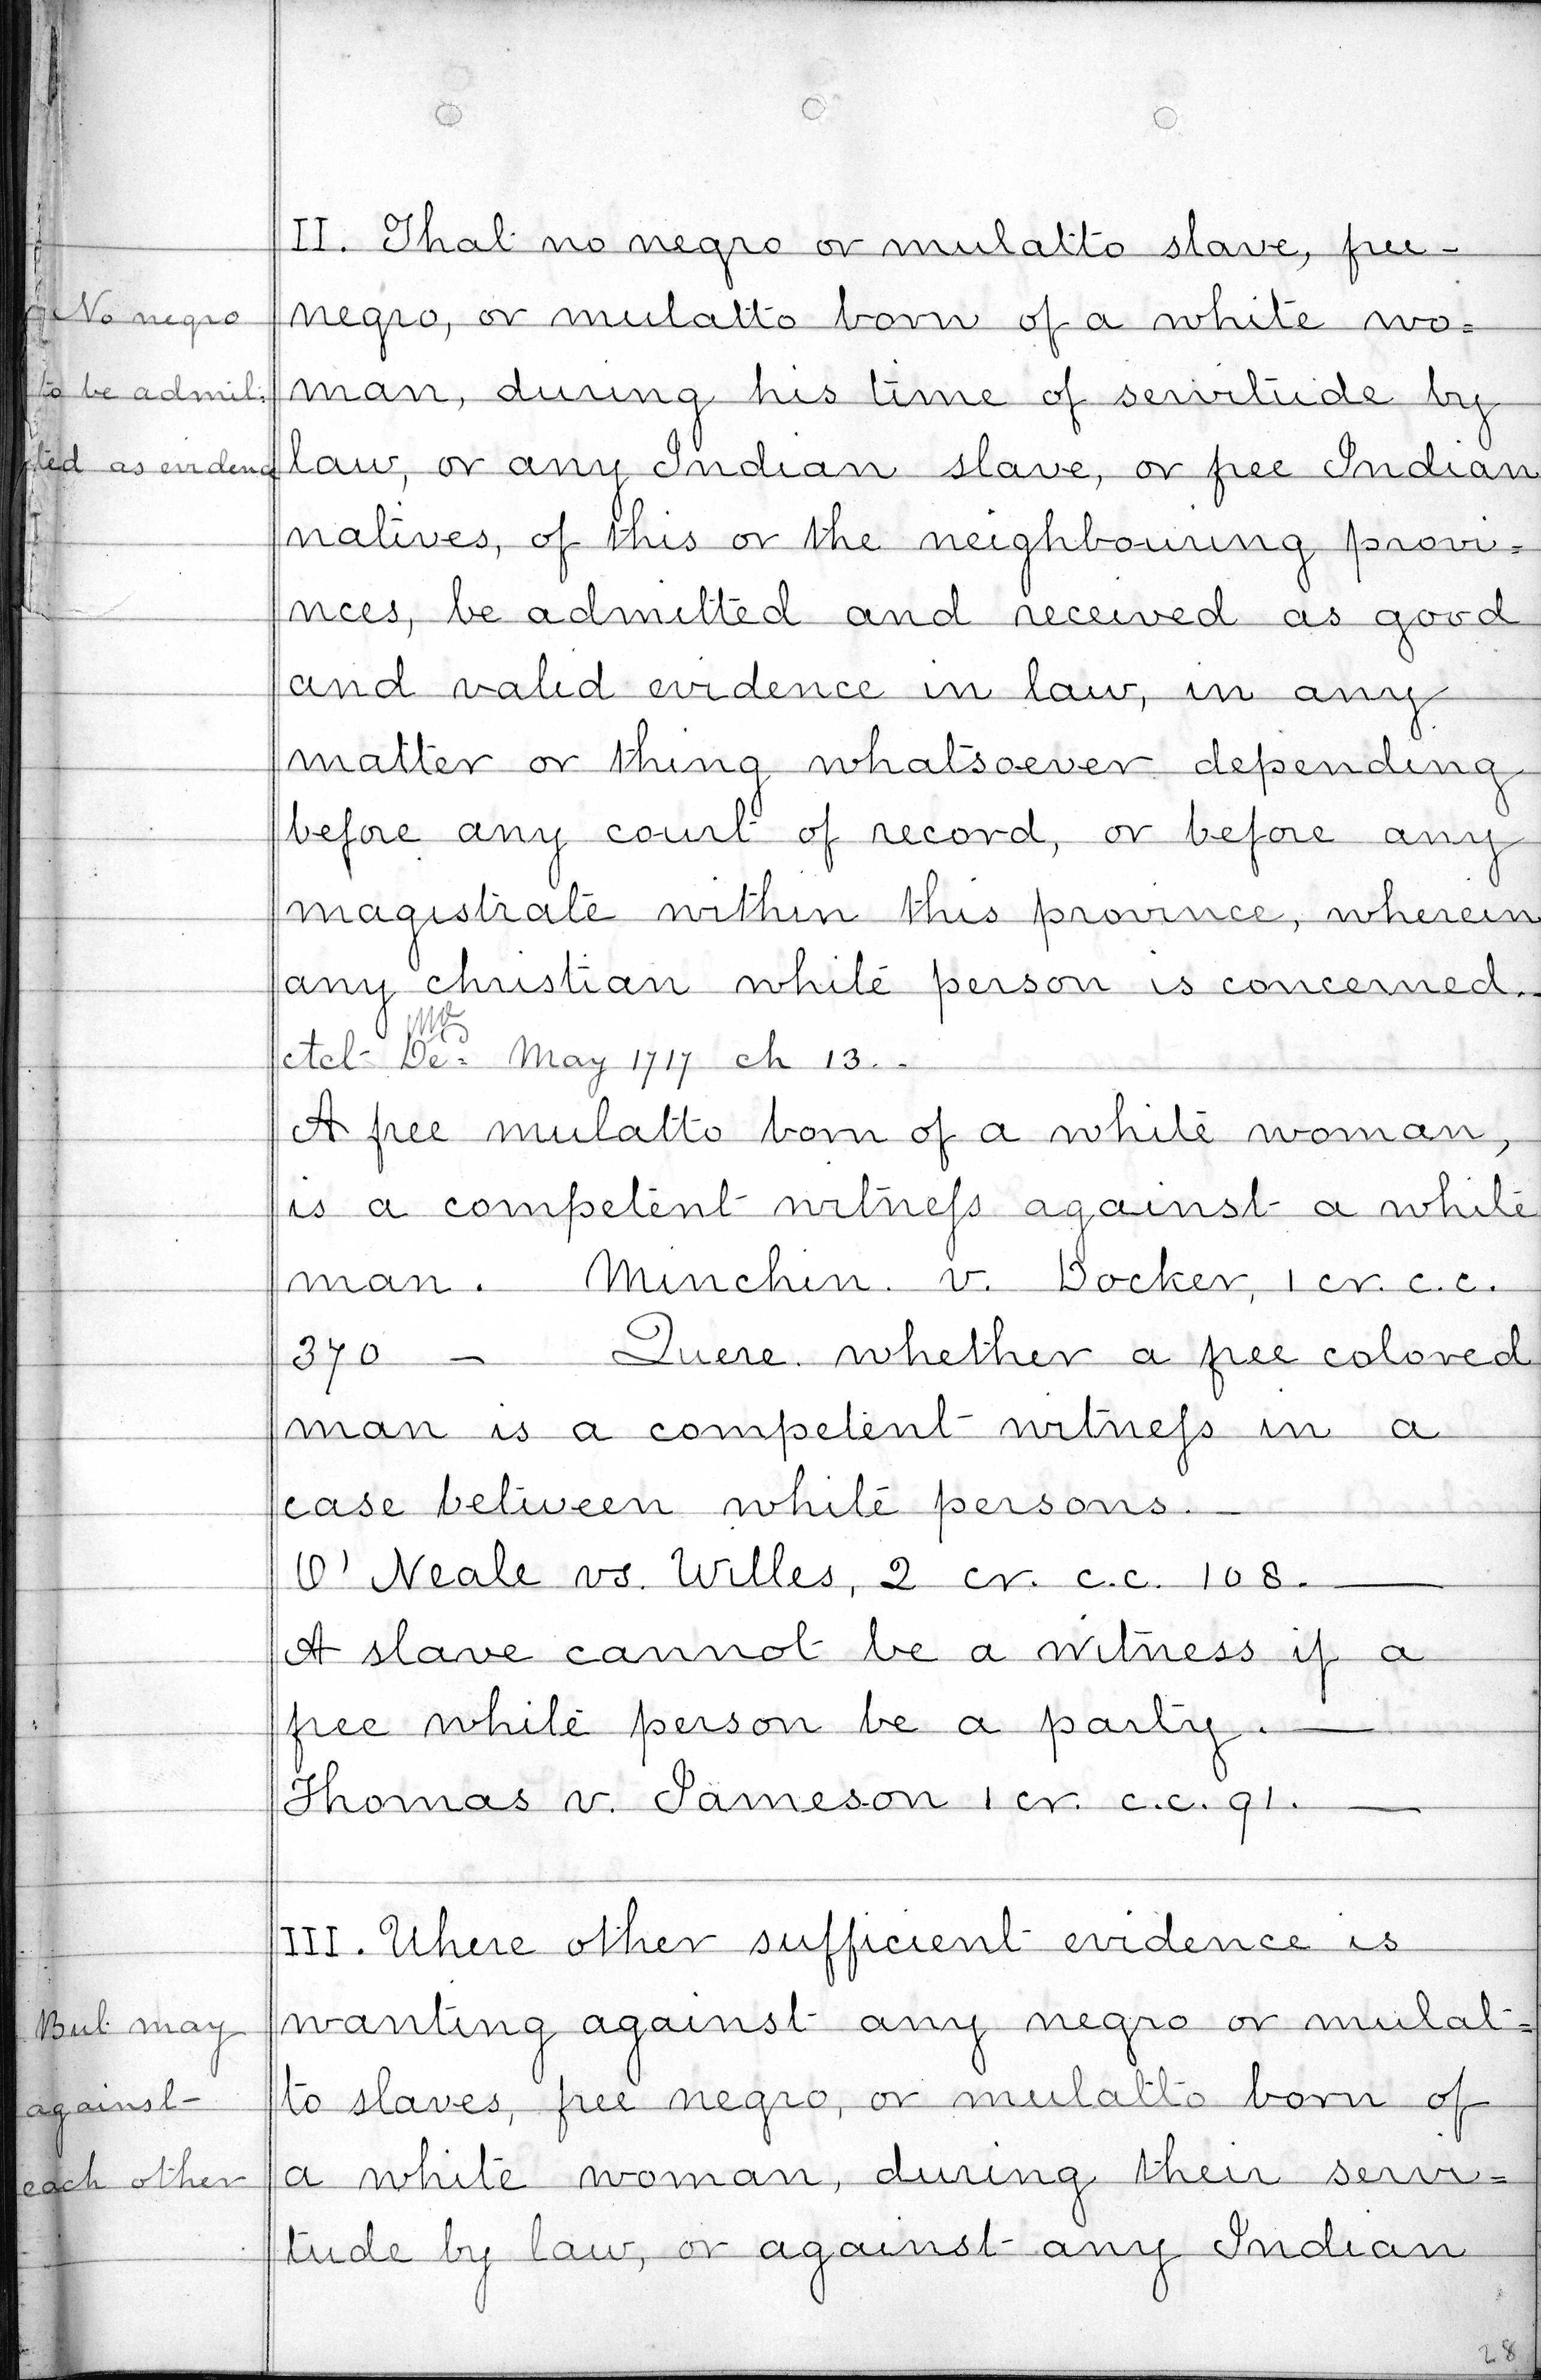 II. That no negro or mulatto slave, free-
No negro
negro, or mulatto born of a white wo=
to be admit:
man, during his time of servitude by
ted as evidenc
law, or any Indian slave, or free Indian
natives, of this or the neighbouring provi=
nces, be admitted and received as good
and valid evidence in law, in any
matter or thing whatsoever depending
before any court of record, or before any
magistrate within this province, wherein
any christian white person is concerned.
Act De= May 1717 ch 13..
A free mulatto born of a white woman,
is a competent witneſs against a white
man. Minchin. v. Docker, 1 cr. c.c.
370 – Quere. whether a free colored
man is a competent witneſs in a
case between white persons. –
O' Neale vs. Willes, 2 cr. c.c. 108. —
A slave cannot be a witness if a
free white person be a party. —
Thomas v. Jameson 1 cr. c.c. 91. —
III. Where other sufficient evidence is
But may
wanting against any negro or mulat=
against
to slaves, free negro, or mulatto born of
each other
a white woman, during their servi=
tude by law, or against any Indian
28